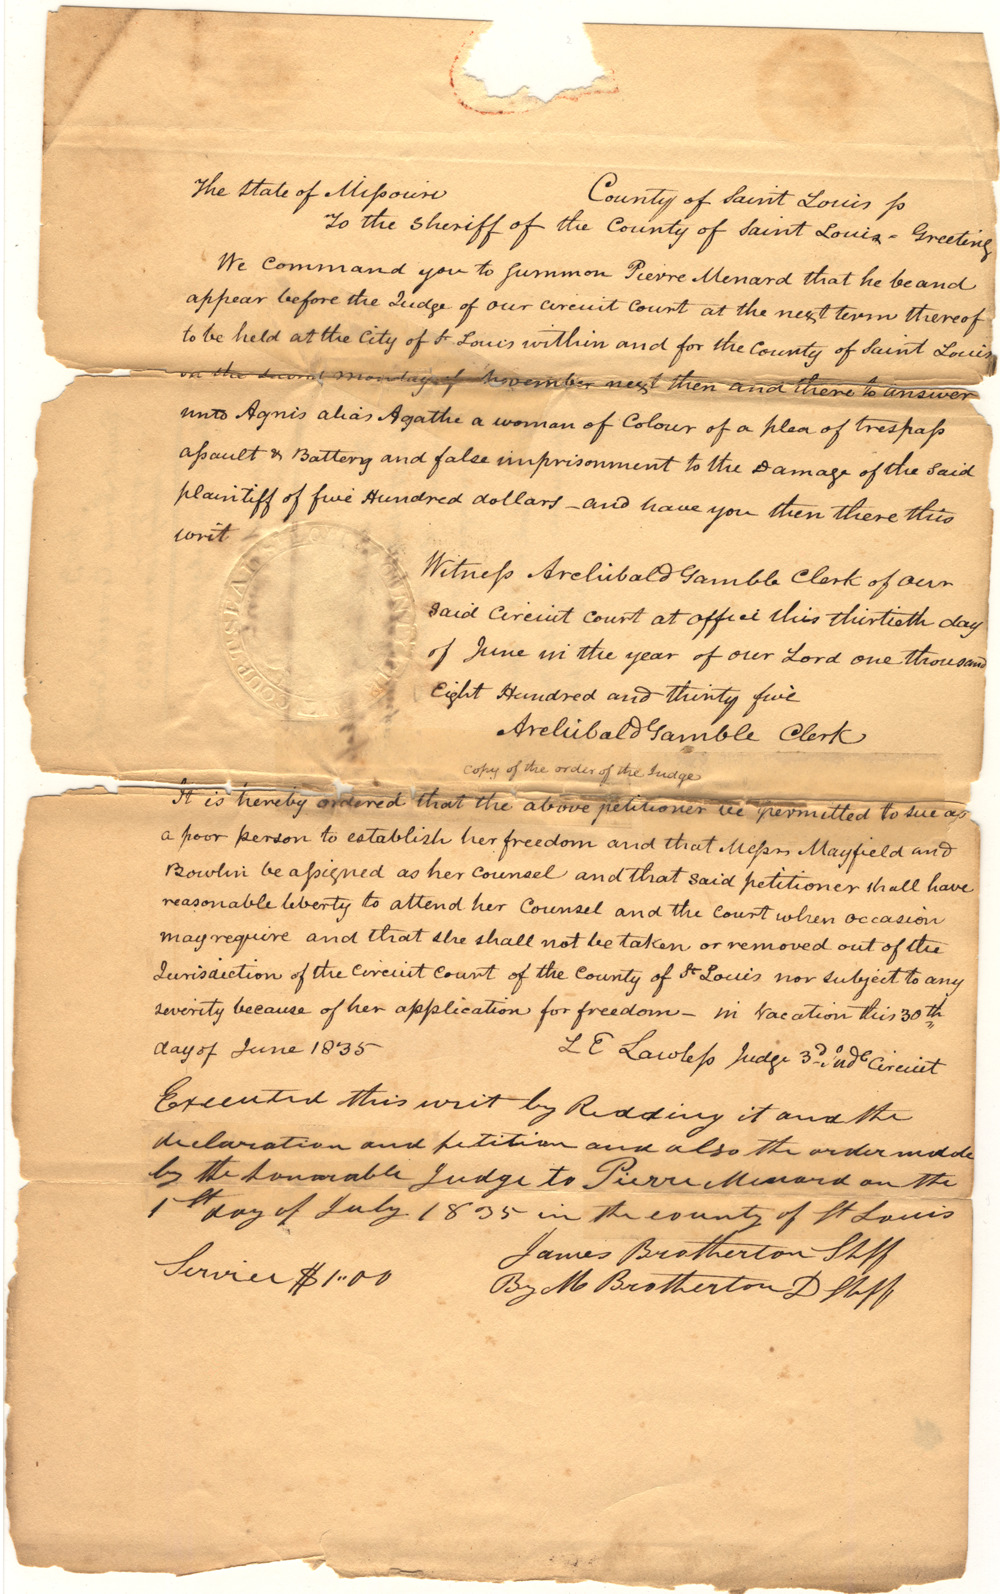 The State of Missouri County of Saint Louis ss
To the Sheriff of the County of Saint Louis - Greeting
We command you to Summon Pierre Menard that he be and
appear before the Judge of our circuit court at the next term thereof
to be held at the City of St Louis within and for the County of Saint Louis
on the second monday of November next then and there to answer
unto Agnis alias Agathe a woman of Colour of a plea of trespass
assault & Battery and false imprisonment to the Damage of the Said
plaintiff of five Hundred dollars - and have you then there this
writ
Witness Archibald Gamble Clerk of our
said Circuit court at office this thirtieth day
of June in the year of our Lord one thousand
Eight Hundred and thirty five
Archibald Gamble Clerk
Copy of the order of the Judge
It is hereby ordered that the above petitioner be permitted to sue as
a poor person to establish her freedom and that Messrs Mayfield and
Bowlin be assigned as her Counsel and that said petitioner shall have
reasonable liberty to attend her Counsel and the Court when occasion
may require and that she shall not be taken or removed out of the
Jurisdiction of the Circuit Court of the County of St Louis nor subject to any
severity because of her application for freedom - in Vacation this 30th
day of June 1835 L E Lawless Judge 3d Judl Circuit
Executed this writ by Redding it and the
declaration and petition and also the order made
by the honorable Judge to Pierre Menard on the
1st day of July 1835 in the county of St Louis
James Brotherton Shff
Service $1.00 By M Brotherton D Shff